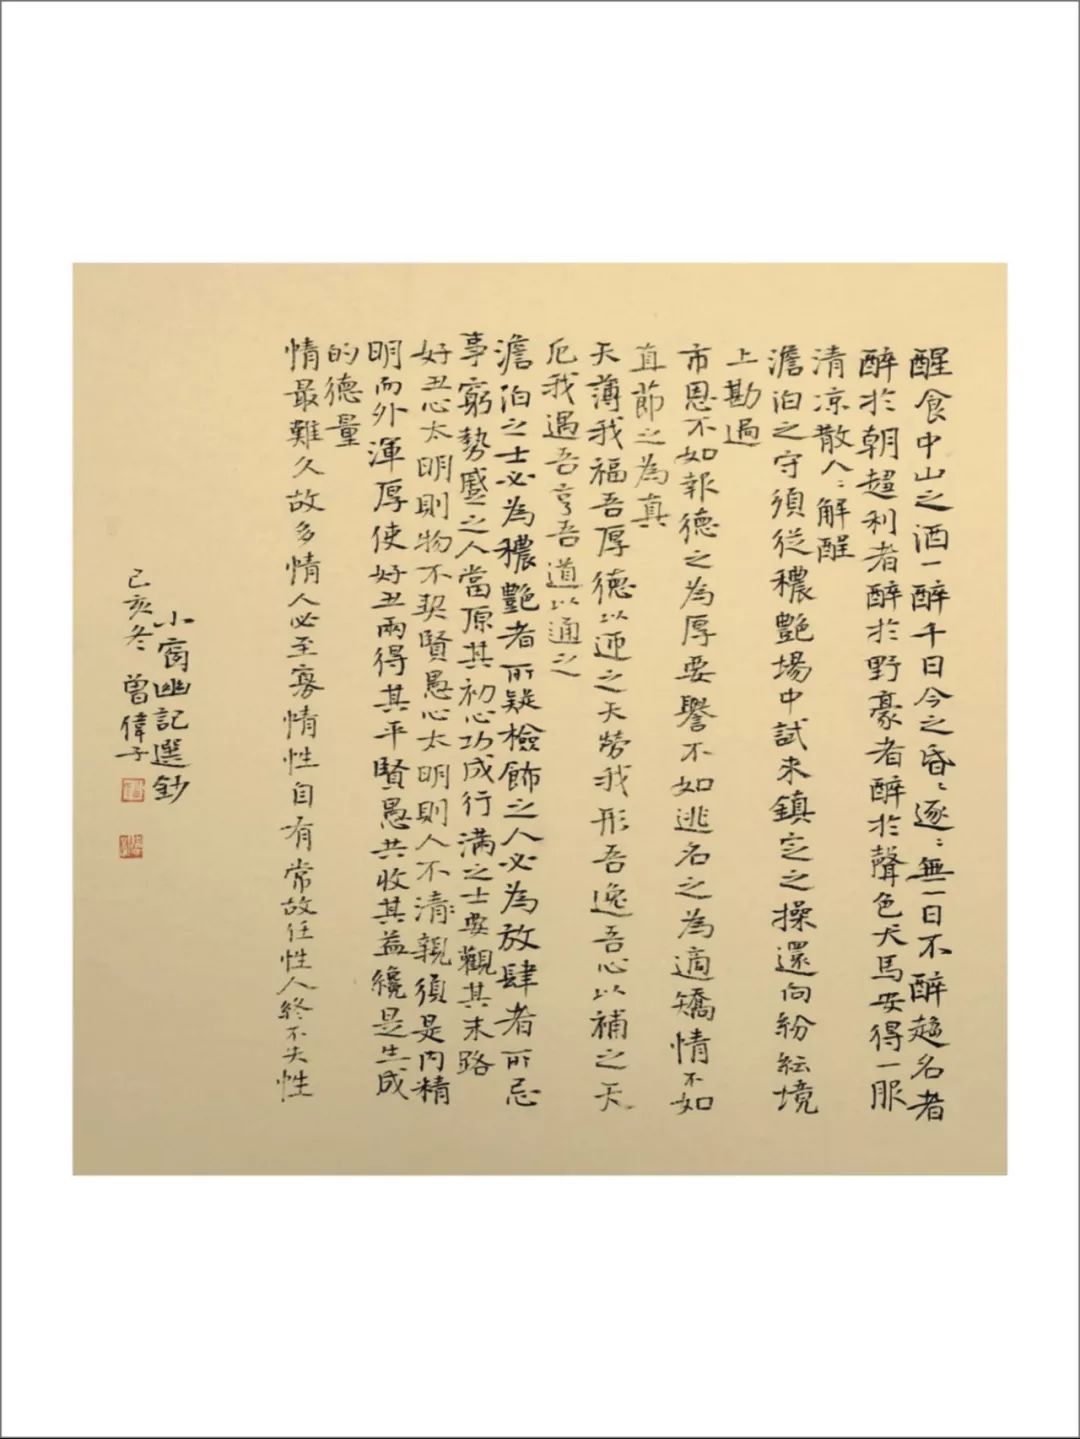 醒食中山之酒一醉千日今之昏〻逐〻無一日不醉趨名者
醉於朝趨利者醉於野豪者醉於聲色犬馬安得一服
清凉散人〻解醒
澹泊之守須從穠艷場中試来鎮定之操還向紛紜境
上勘過
市恩不如報德之為厚要譽不如逃名之為適矯情不如
直節之為真
天薄我福吾厚德以迊之天勞我形吾逸吾心以補之天
厄我遇吾亨吾道以通之
澹泊之士必為穠艷者所疑檢飾之人必為放肆者所忌
事窮勢盛之人當原其初心功成行滿之士要觀其末路
好丑心太明則物不契賢愚心太明則人不清親須是内精
明而外渾厚使好丑兩得其平賢愚共收其益纔是生成
的德量
情最難久故多情人必至寡情性自有常故任性人終不失性
小窗幽記選鈔
己亥冬 曾偉子